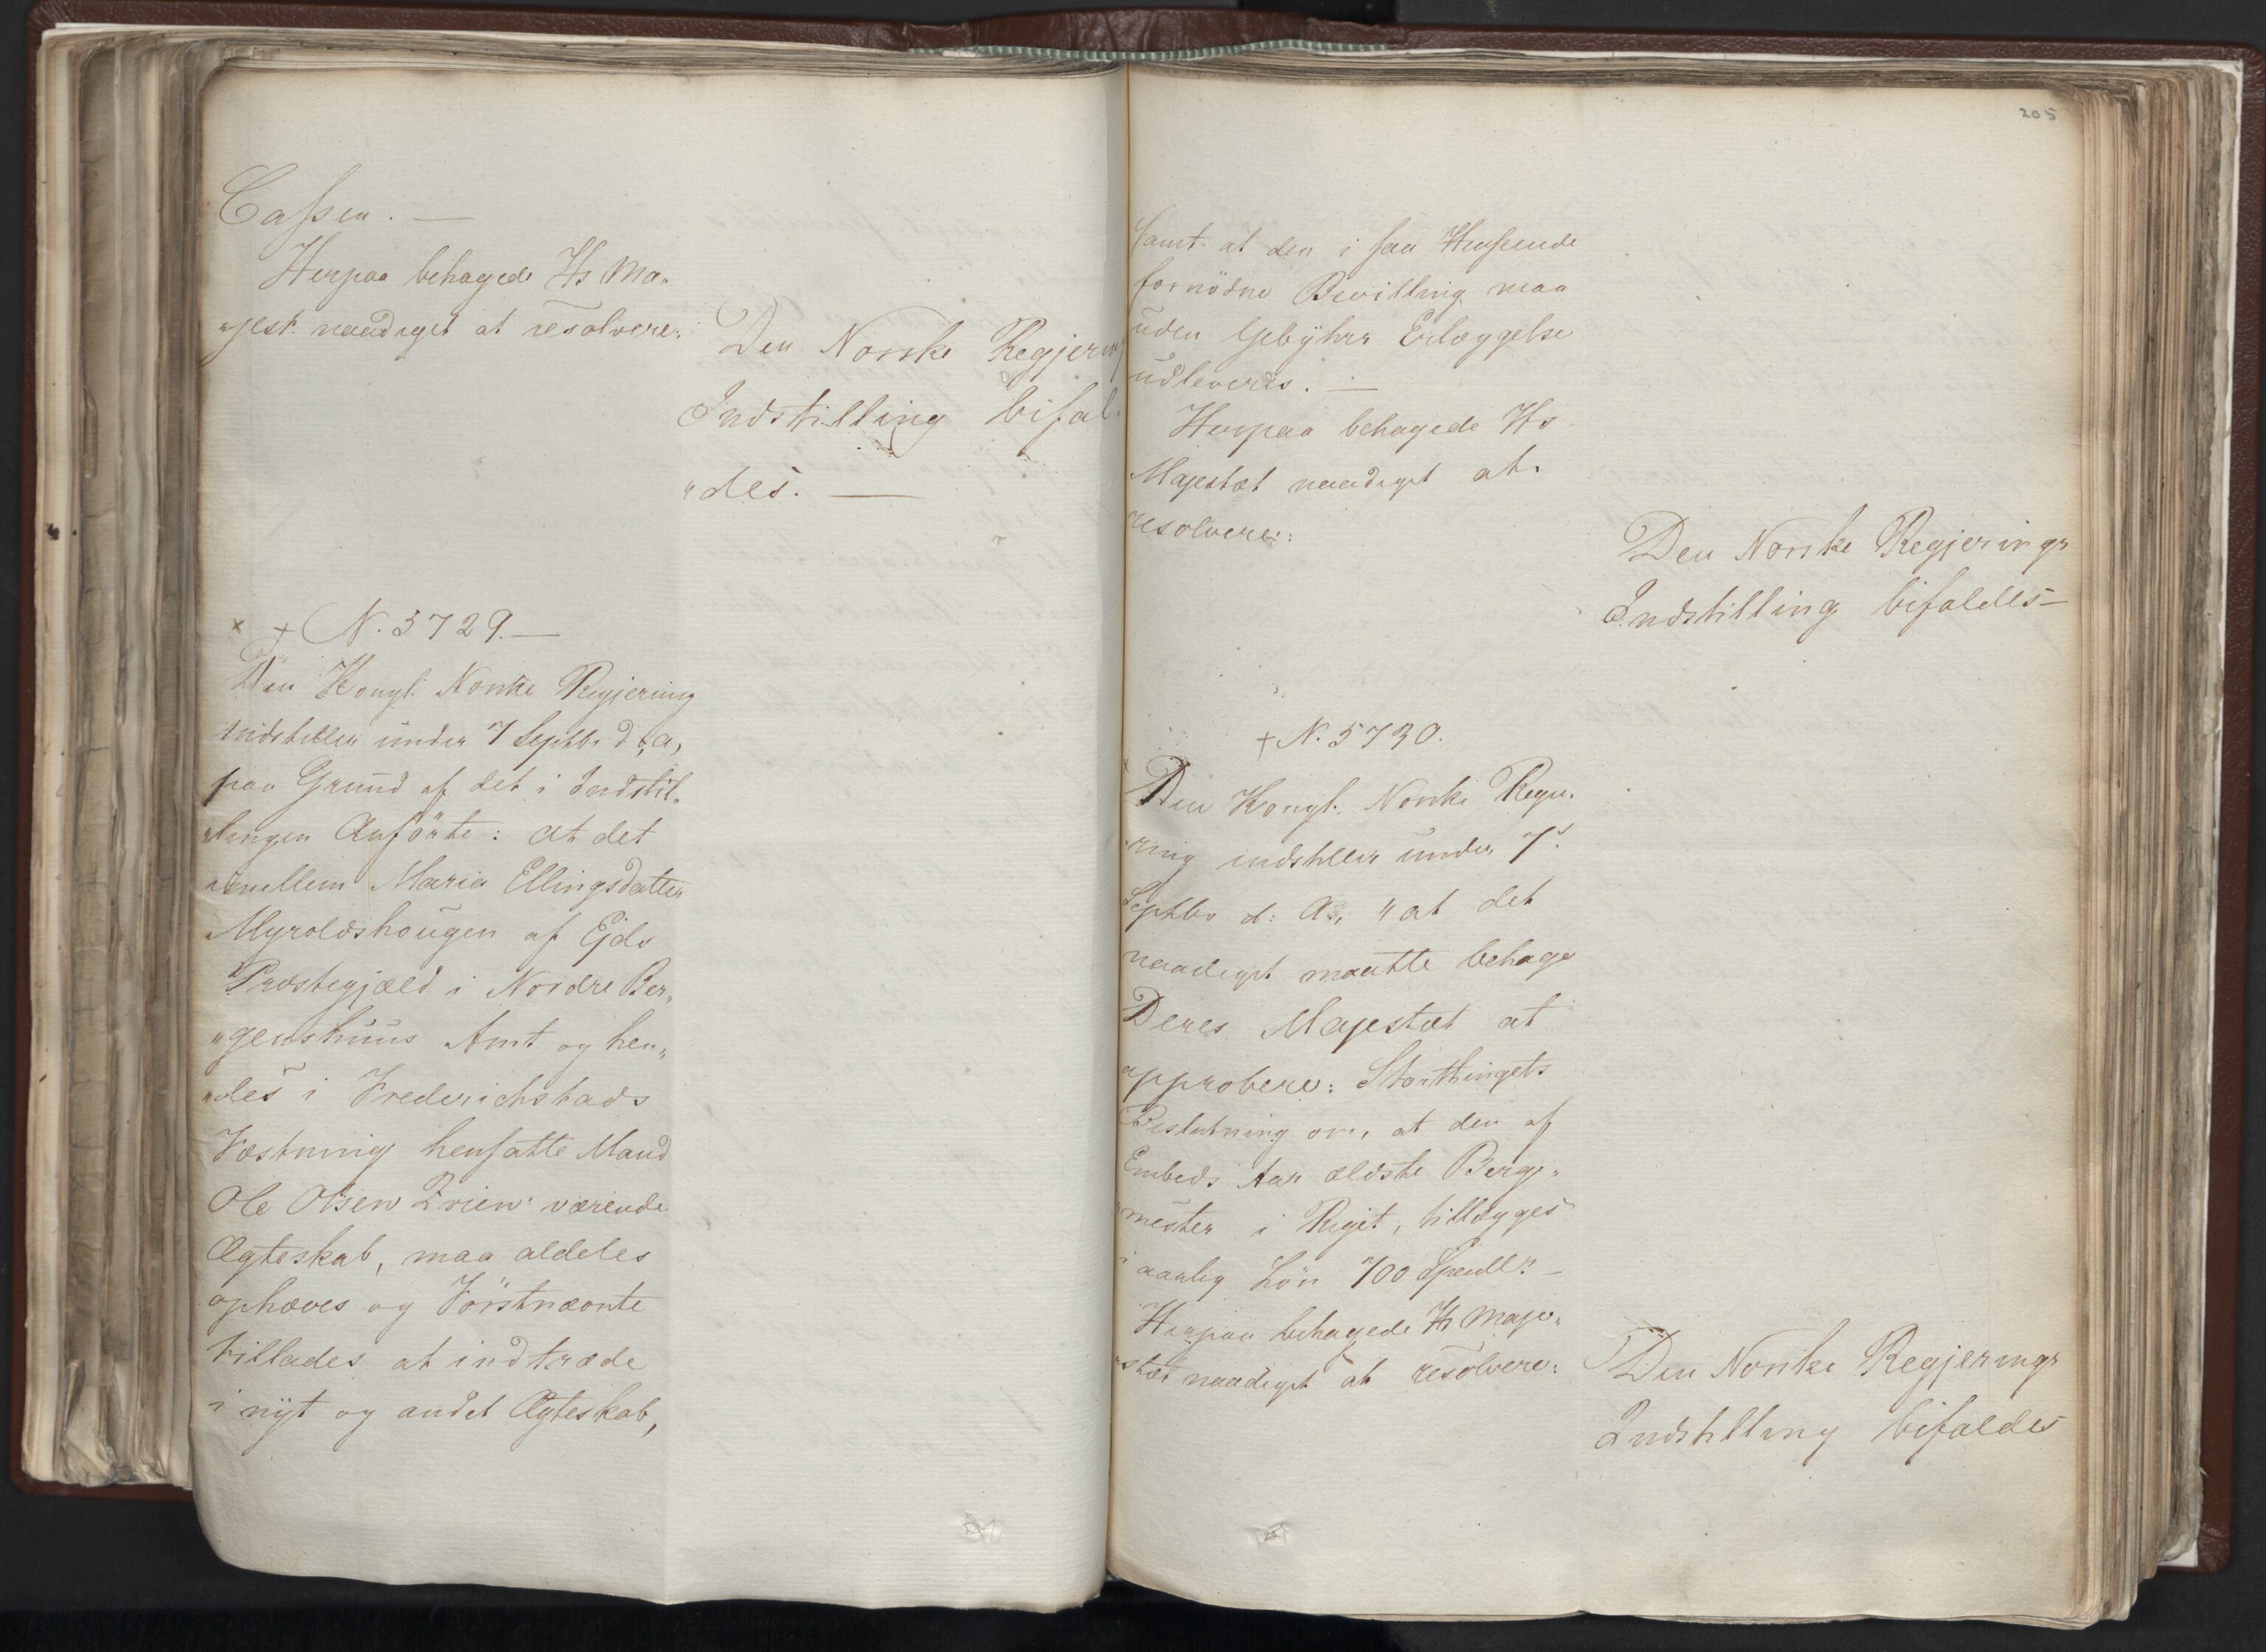 Cassen. —
Herpaa behagede Hs Ma„
„jest: naadigst at resolvere:
Den Norske Regjerings
Indstilling bifal„
„des. —
× + N. 5729. —
Den Kongl: Norske Regjering
indstiller under 7 Septbr d. a,
paa Grund af det i Indstil„
„lingen Anförte: at det
mellem Maria Ellingsdatter
Myroldshougen af Ejds
Præstegjæld i Nordre Ber„
„genshuus Amt og hen„
„des i Frederichstads
Fæstning hensatte Mand
Ole Olsen værende
Ægteskab, maa aldeles
ophæves og Förstnævnte
tillades at indtræde
i nyt og andet Ægteskab,
205
samt at den i saa Henseende
fornödne Bevilling maa
uden Gebyhrs Erlæggelse
udleveres. —
Herpaa behagede Hs
Majestæt naadigst at
resolvere:
Den Norske Regjerings
Indstilling bifaldes —
+ N. 5730.
Den Kongl: Norske Regje„
„ring indstiller under 7.
Septbr d: A., „at det
naadigst maatte behage
Deres Majestæt at
approbere: Storthingets
Beslutning om, at den af
Embeds Aar ældste Berg„
„mester i Riget, tillægges
i aarlig Lön 700 Specdlr. —
Herpaa behagede Hs Maje„
„stæt naadigst at resolvere:
Den Norske Regjerings
Indstilling bifaldes